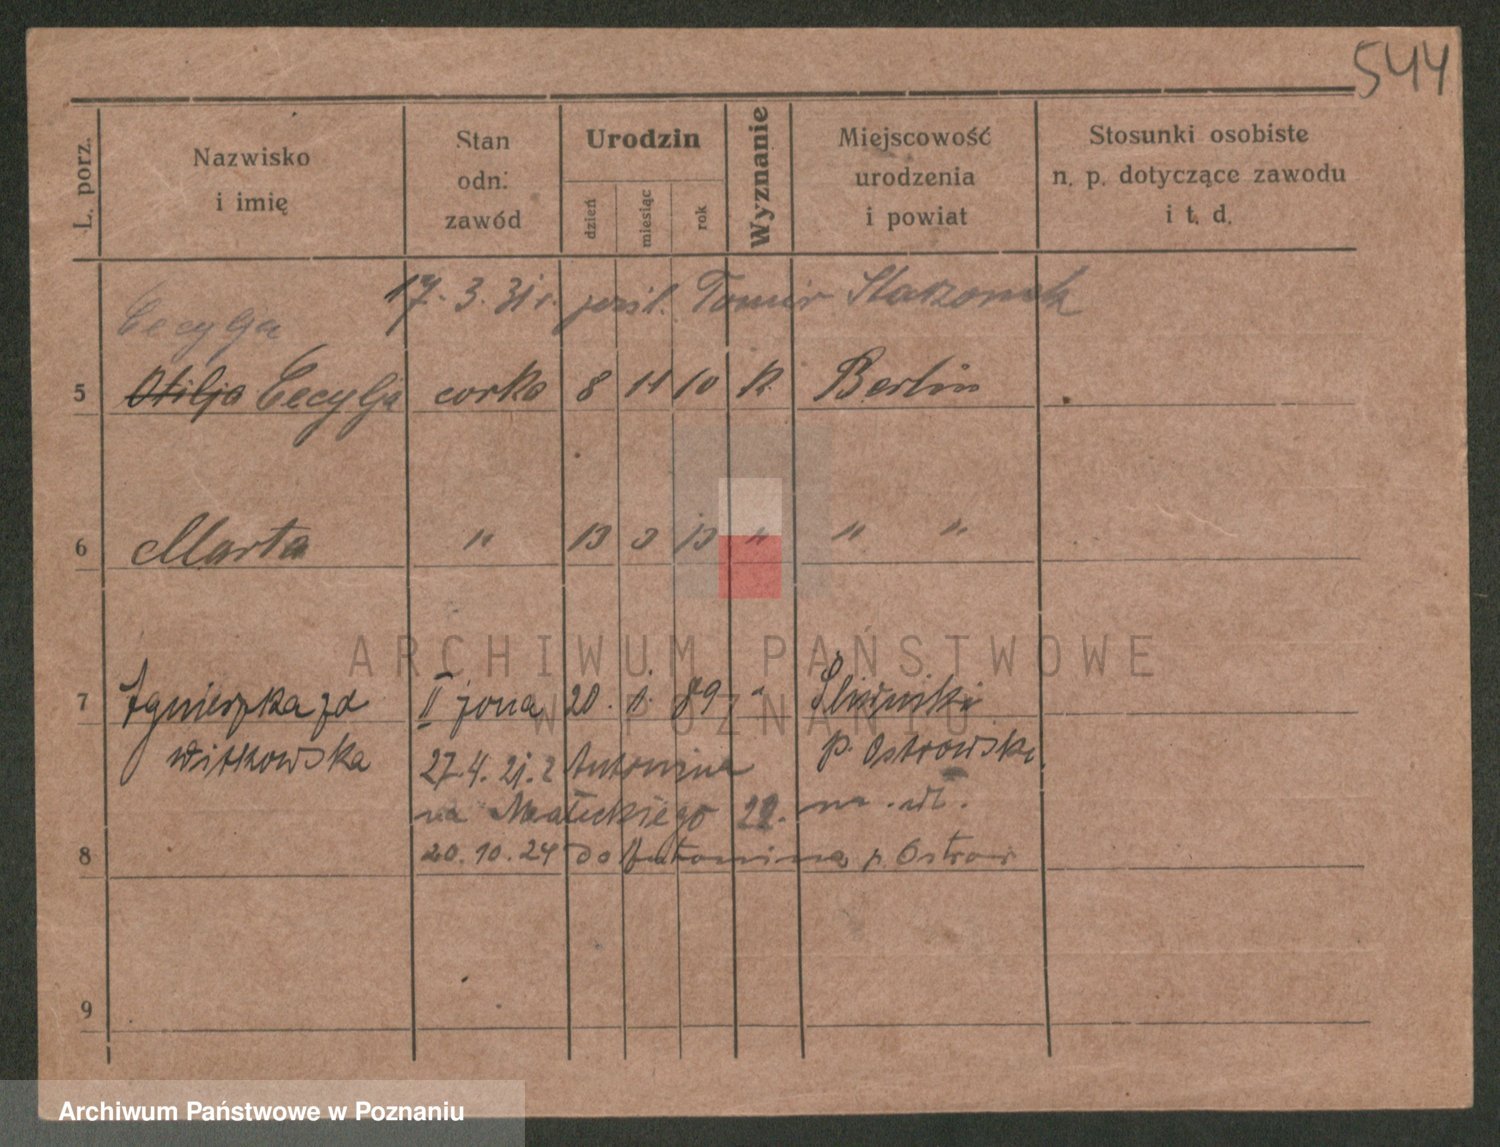 544
L. porz.
Nazwisko
i imię
Stan
odn.
zawód
Urodzin
dzień
miesiąc
rok
Wyznanie
Miejscowość
urodzenia
i powiat
Stosunki osobiste
n. p. dotyczące zawodu
i t. d.
Cecylja 17. 3. 31 r.
5 Otilja Cecylja corka 8 11 10 k. Berlin
6 Marta " 13 3 13 " " "
7 Agnieszka zd II żona 20. 1. 89 "
Witkowska p. Ostrowski
27.4.21. z Antonina
na Małeckiego 22. m.
8 20.10.24 do Antonina p. Ostrow
9
ARCHIWUM PAŃSTWOWE
W POZNANIU
Archiwum Państwowe w Poznaniu